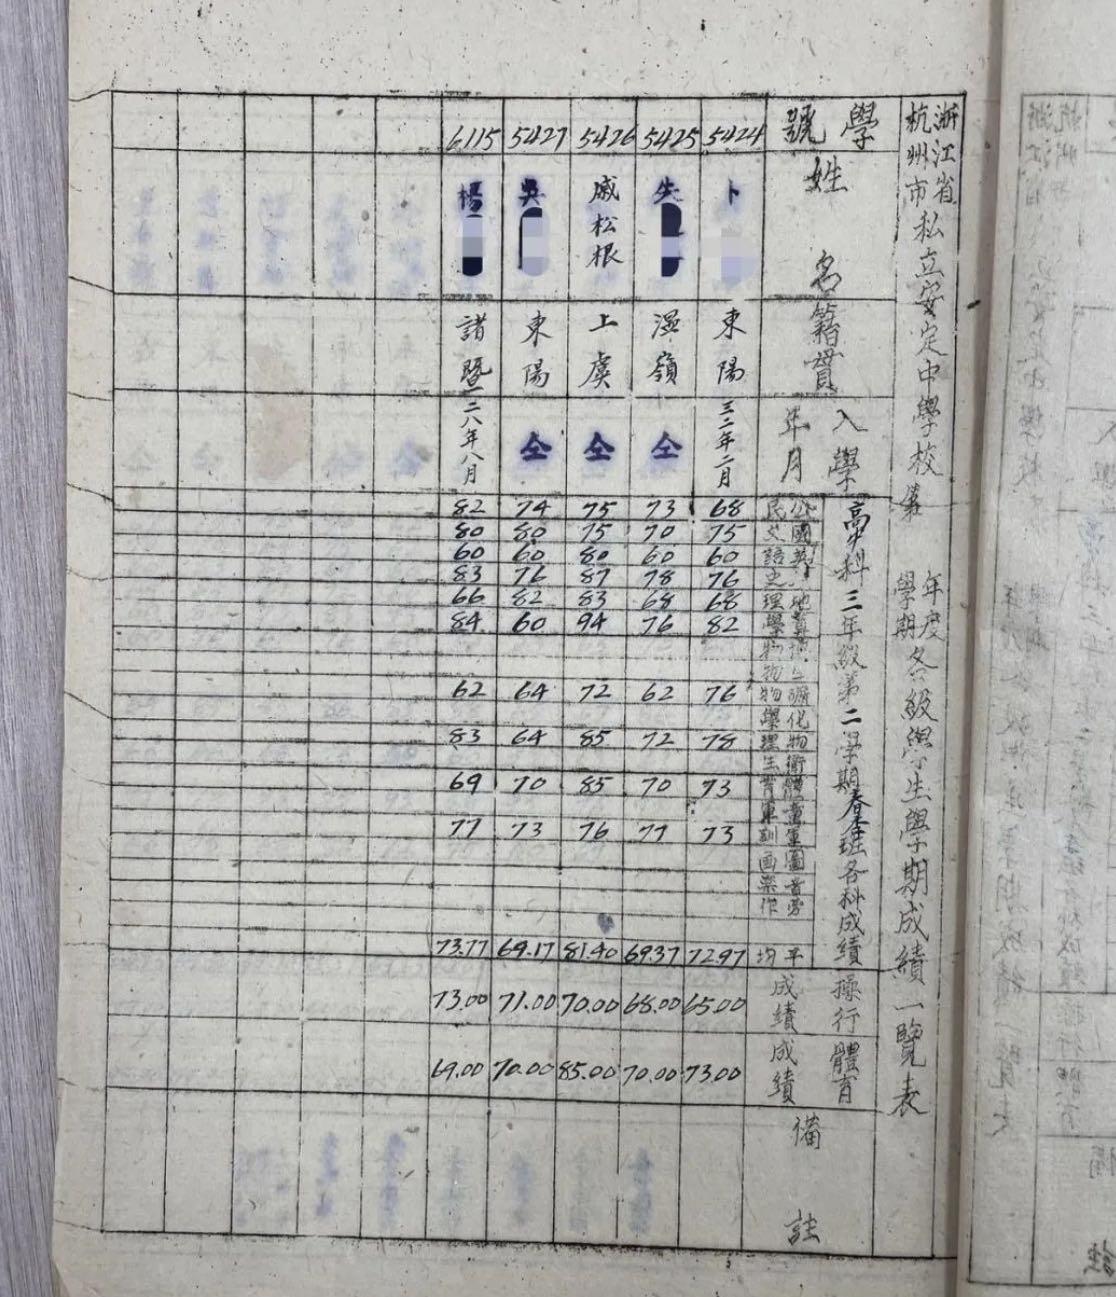 浙江省
杭州市私立安定中學校第　年度學期各級學生學期成績一覽表
學號
姓名
籍貫
入學年月
高中科三年級第二學期春季班各科成績
公民
國文
英語
史
地理
算學
礦物
化學
物理
衛生
體育
童軍
軍訓
圖画
音樂
勞作
平均
操行成績
體育成績
備註
5424
卜
東陽
三二年二月
68
75
60
76
68
82
76
78
73
73
72.97
65.00
73.00
5425
仝
73
70
60
78
68
76
62
72
70
77
69.37
68.00
70.00
5426
戚松根
上虞
仝
75
75
80
87
83
94
72
85
85
76
81.40
70.00
85.00
5427
吳
東陽
仝
74
80
60
76
82
60
64
64
70
73
69.17
71.00
70.00
6115
楊
諸暨
二八年八月
82
80
60
83
66
84
62
83
69
77
73.77
73.00
69.00